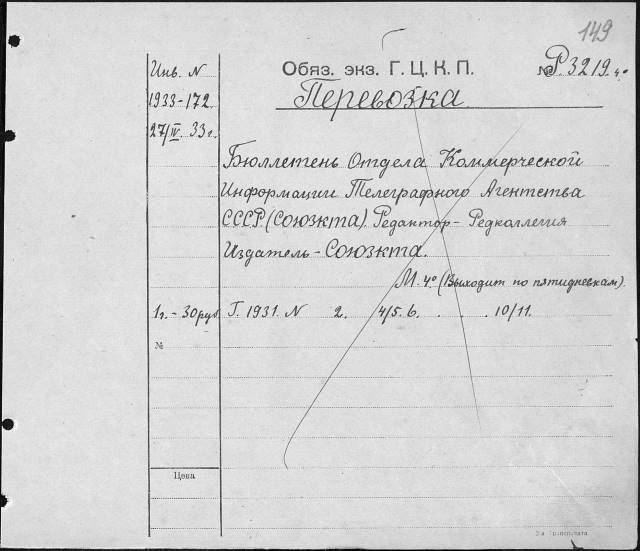 149
Инв. N
Обяз. экз. Г. Ц. К. П.
№ Р3219 4°
1933-172
Перевозка
27/IV. 33 г.
Бюллетень Отдела Коммерческой
Информации Телеграфного Агентства
СССР. (Союзкта). Редактор - Редколлегия
Издатель - Союзкта.
М. 4° (Выходит по пятидневкам).
1 г. - 30 руб
Г. 1931. N 2. 4/5. 6. . . 10/11.
№
Цена